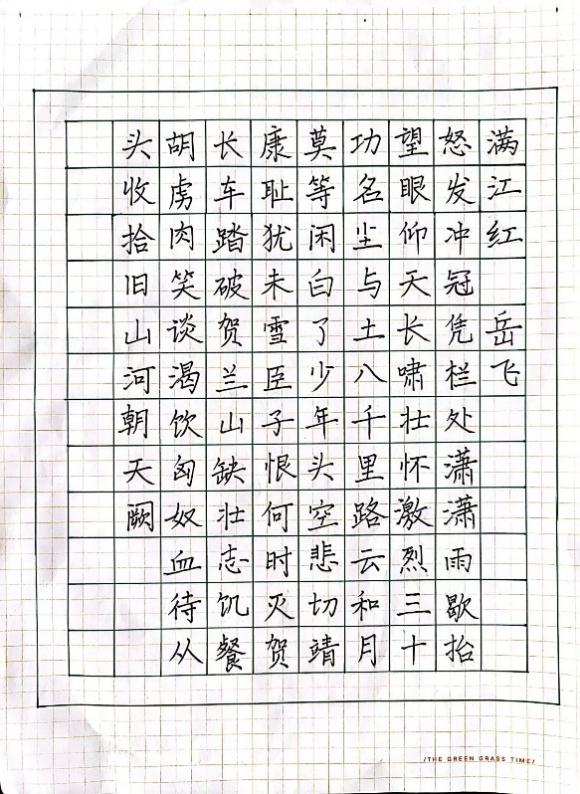 满江红 岳飞
怒发冲冠凭栏处潇潇雨歇抬
望眼仰天长啸壮怀激烈三十
功名尘与土八千里路云和月
莫等闲白了少年头空悲切靖
康耻犹未雪臣子恨何时灭贺
长车踏破贺兰山缺壮志饥餐
胡虏肉笑谈渴饮匈奴血待从
头收拾旧山河朝天阙
/THE GREEN GRASS TIME/